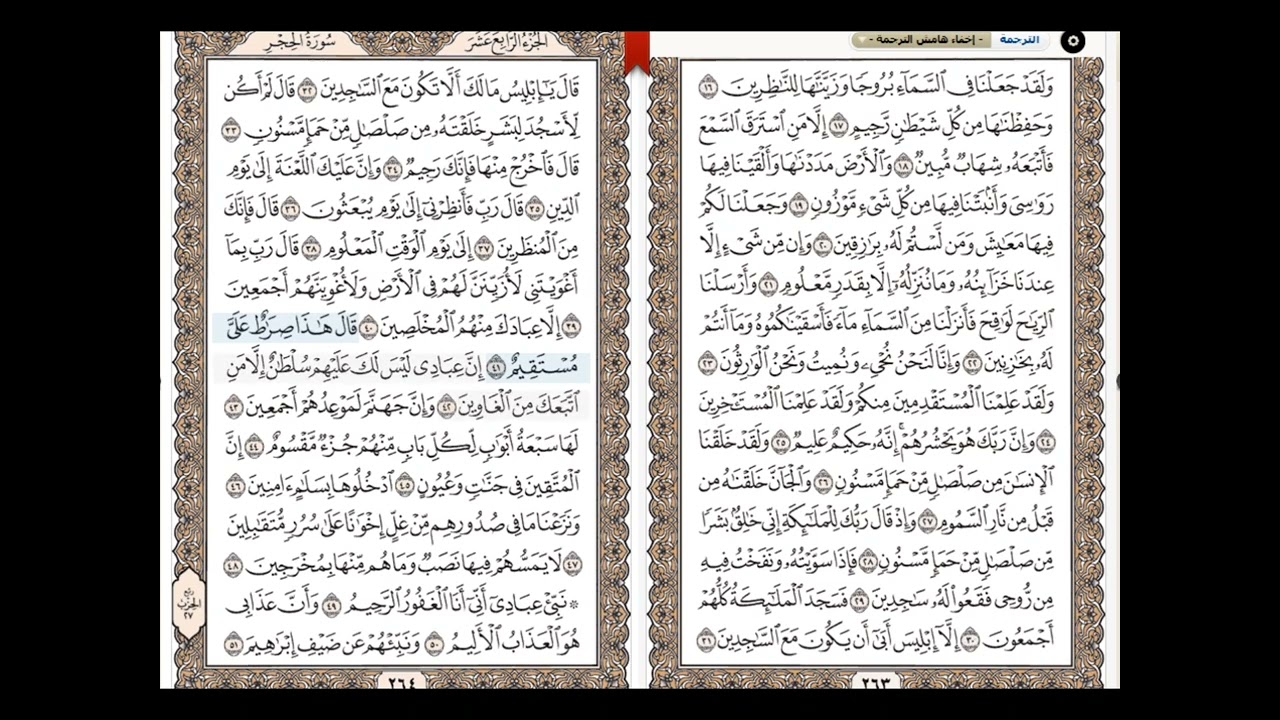 الترجمة - إخفاء هامش الترجمة -
وَلَقَدْ جَعَلْنَا فِى السَّمَآءِ بُرُوجًا وَزَيَّنَّٰهَا لِلنَّٰظِرِينَ ١٦
وَحَفِظْنَٰهَا مِن كُلِّ شَيْطَٰنٍ رَّجِيمٍ ١٧ إِلَّا مَنِ اسْتَرَقَ السَّمْعَ
فَأَتْبَعَهُۥ شِهَابٌ مُّبِينٌ ١٨ وَالْأَرْضَ مَدَدْنَٰهَا وَأَلْقَيْنَا فِيهَا
رَوَٰسِىَ وَأَنۢبَتْنَا فِيهَا مِن كُلِّ شَىْءٍ مَّوْزُونٍ ١٩ وَجَعَلْنَا لَكُمْ
فِيهَا مَعَٰيِشَ وَمَن لَّسْتُمْ لَهُۥ بِرَٰزِقِينَ ٢٠ وَإِن مِّن شَىْءٍ إِلَّا
عِندَنَا خَزَآئِنُهُۥ وَمَا نُنَزِّلُهُۥٓ إِلَّا بِقَدَرٍ مَّعْلُومٍ ٢١ وَأَرْسَلْنَا
الرِّيَٰحَ لَوَٰقِحَ فَأَنزَلْنَا مِنَ السَّمَآءِ مَآءً فَأَسْقَيْنَٰكُمُوهُ وَمَآ أَنتُمْ
لَهُۥ بِخَٰزِنِينَ ٢٢ وَإِنَّا لَنَحْنُ نُحْىِۦ وَنُمِيتُ وَنَحْنُ الْوَٰرِثُونَ ٢٣
وَلَقَدْ عَلِمْنَا الْمُسْتَقْدِمِينَ مِنكُمْ وَلَقَدْ عَلِمْنَا الْمُسْتَـْٔخِرِينَ
٢٤ وَإِنَّ رَبَّكَ هُوَ يَحْشُرُهُمْ ۚ إِنَّهُۥ حَكِيمٌ عَلِيمٌ ٢٥ وَلَقَدْ خَلَقْنَا
الْإِنسَٰنَ مِن صَلْصَٰلٍ مِّنْ حَمَإٍ مَّسْنُونٍ ٢٦ وَالْجَآنَّ خَلَقْنَٰهُ مِن
قَبْلُ مِن نَّارِ السَّمُومِ ٢٧ وَإِذْ قَالَ رَبُّكَ لِلْمَلَٰٓئِكَةِ إِنِّى خَٰلِقٌۢ بَشَرًا
مِّن صَلْصَٰلٍ مِّنْ حَمَإٍ مَّسْنُونٍ ٢٨ فَإِذَا سَوَّيْتُهُۥ وَنَفَخْتُ فِيهِ
مِن رُّوحِى فَقَعُوا۟ لَهُۥ سَٰجِدِينَ ٢٩ فَسَجَدَ الْمَلَٰٓئِكَةُ كُلُّهُمْ
أَجْمَعُونَ ٣٠ إِلَّآ إِبْلِيسَ أَبَىٰٓ أَن يَكُونَ مَعَ السَّٰجِدِينَ ٣١
٢٦٣
الجُزْءُ الرَّابِعَ عَشَرَ سُورَةُ الحِجْرِ
قَالَ يَٰٓإِبْلِيسُ مَا لَكَ أَلَّا تَكُونَ مَعَ السَّٰجِدِينَ ٣٢ قَالَ لَمْ أَكُن
لِّأَسْجُدَ لِبَشَرٍ خَلَقْتَهُۥ مِن صَلْصَٰلٍ مِّنْ حَمَإٍ مَّسْنُونٍ ٣٣
قَالَ فَاخْرُجْ مِنْهَا فَإِنَّكَ رَجِيمٌ ٣٤ وَإِنَّ عَلَيْكَ اللَّعْنَةَ إِلَىٰ يَوْمِ
الدِّينِ ٣٥ قَالَ رَبِّ فَأَنظِرْنِىٓ إِلَىٰ يَوْمِ يُبْعَثُونَ ٣٦ قَالَ فَإِنَّكَ
مِنَ الْمُنظَرِينَ ٣٧ إِلَىٰ يَوْمِ الْوَقْتِ الْمَعْلُومِ ٣٨ قَالَ رَبِّ بِمَآ
أَغْوَيْتَنِى لَأُزَيِّنَنَّ لَهُمْ فِى الْأَرْضِ وَلَأُغْوِيَنَّهُمْ أَجْمَعِينَ
٣٩ إِلَّا عِبَادَكَ مِنْهُمُ الْمُخْلَصِينَ ٤٠ قَالَ هَٰذَا صِرَٰطٌ عَلَىَّ
مُسْتَقِيمٌ ٤١ إِنَّ عِبَادِى لَيْسَ لَكَ عَلَيْهِمْ سُلْطَٰنٌ إِلَّا مَنِ
اتَّبَعَكَ مِنَ الْغَاوِينَ ٤٢ وَإِنَّ جَهَنَّمَ لَمَوْعِدُهُمْ أَجْمَعِينَ ٤٣
لَهَا سَبْعَةُ أَبْوَٰبٍ لِّكُلِّ بَابٍ مِّنْهُمْ جُزْءٌ مَّقْسُومٌ ٤٤ إِنَّ
الْمُتَّقِينَ فِى جَنَّٰتٍ وَعُيُونٍ ٤٥ ادْخُلُوهَا بِسَلَٰمٍ ءَامِنِينَ ٤٦
وَنَزَعْنَا مَا فِى صُدُورِهِم مِّنْ غِلٍّ إِخْوَٰنًا عَلَىٰ سُرُرٍ مُّتَقَٰبِلِينَ
٤٧ لَا يَمَسُّهُمْ فِيهَا نَصَبٌ وَمَا هُم مِّنْهَا بِمُخْرَجِينَ ٤٨
۞ نَبِّئْ عِبَادِىٓ أَنِّىٓ أَنَا الْغَفُورُ الرَّحِيمُ ٤٩ وَأَنَّ عَذَابِى
هُوَ الْعَذَابُ الْأَلِيمُ ٥٠ وَنَبِّئْهُمْ عَن ضَيْفِ إِبْرَٰهِيمَ ٥١
ربع
الحزب
٢٧
٢٦٤